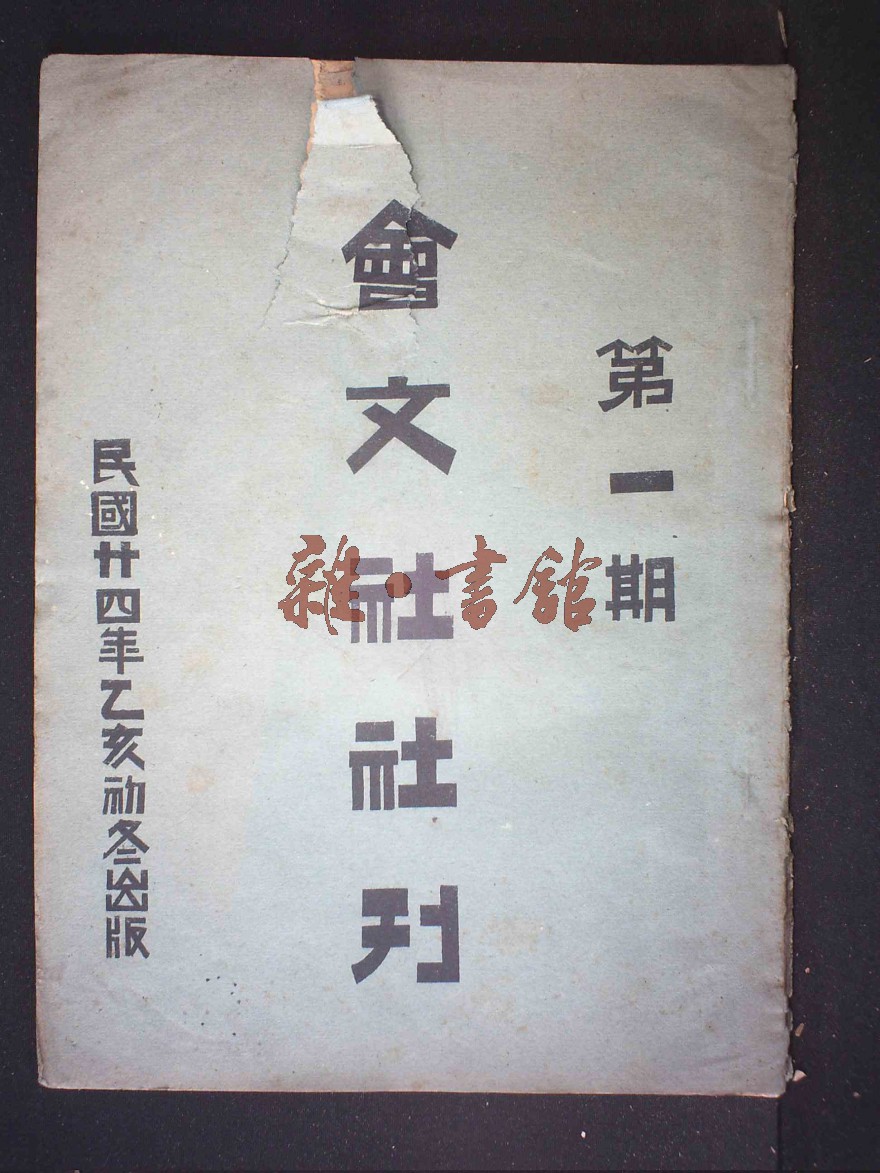 第一期
會文社社刊
民國廿四年乙亥初冬出版
雜·書舘